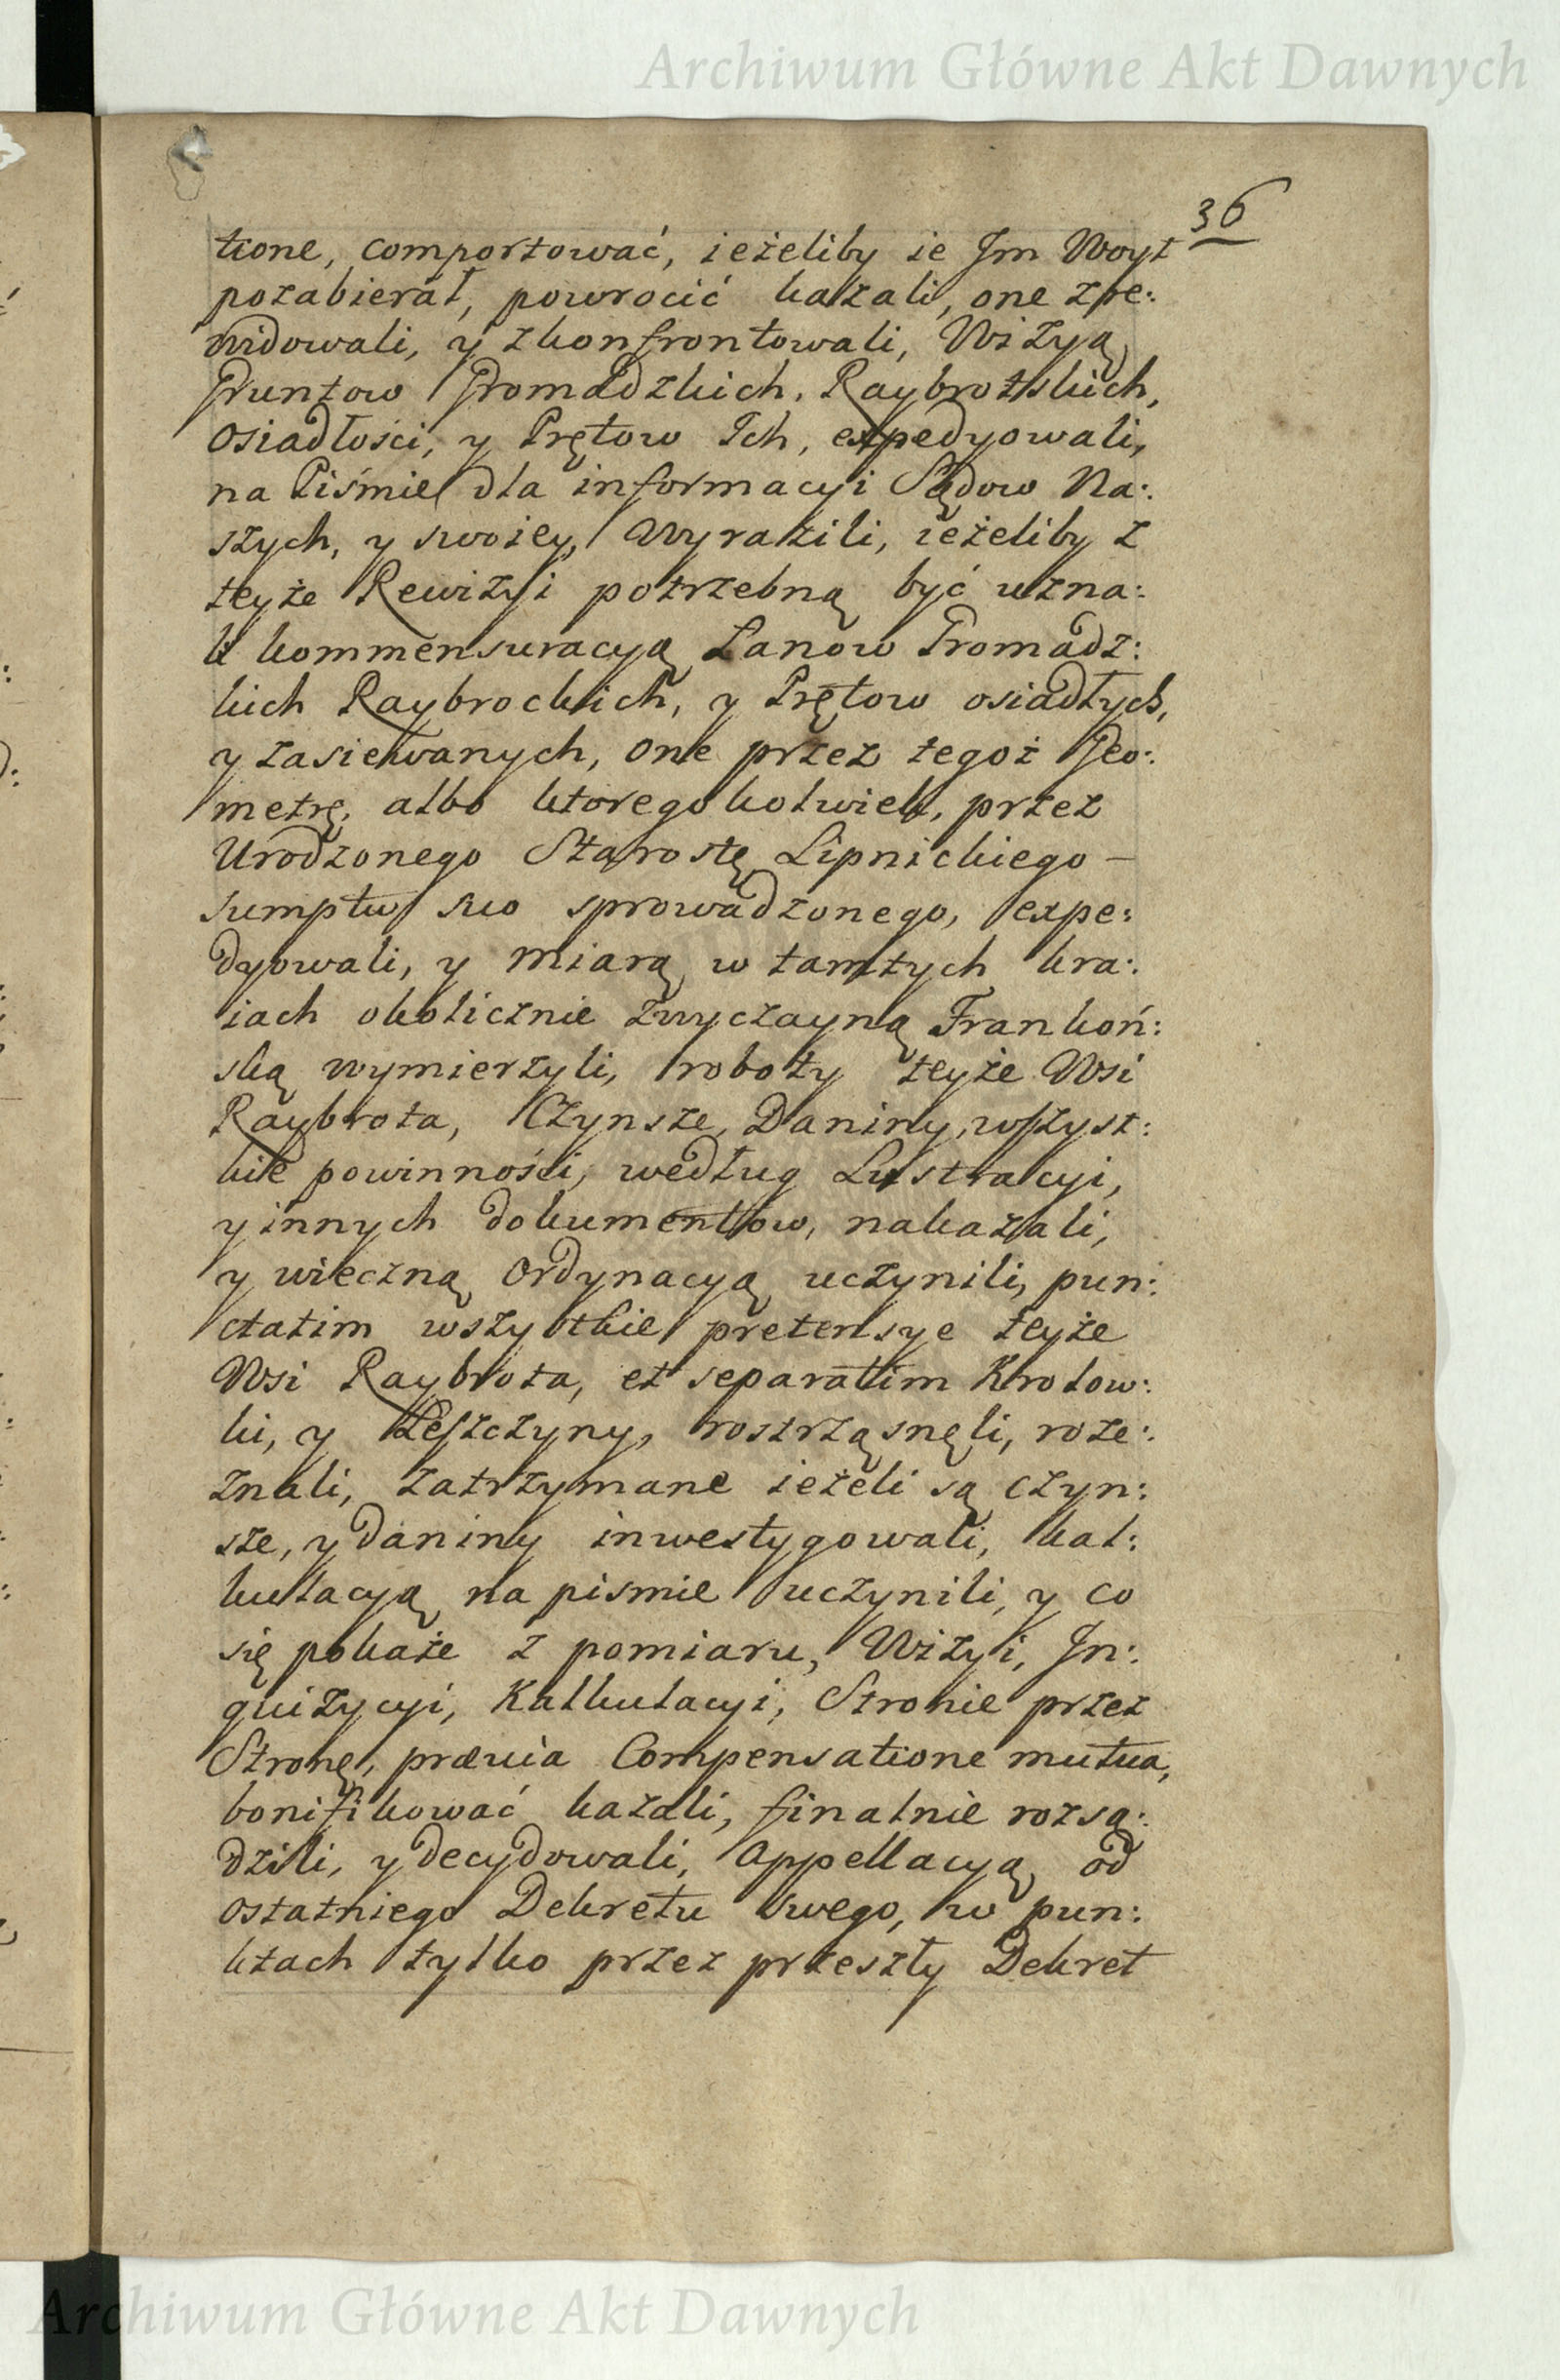 Archiwum Główne Akt Dawnych
36
tione, comportować, ieżeliby ie Jm Woyt
pozabierał, powrocić kazali, one zre:
widowali, y zkonfrontowali, Wizyą
Gruntow Gromadzkich, Raybrotskich,
osiadłości, y Prętow Ich, expedyowali,
na Piśmie dla informacyi Sądow Na:
szych, y swoiey, wyrazili, ieżeliby z
teyże Rewizyi potrzebną być uzna:
li kommensuracyą Łanow Gromadz:
kich Raybrockich, y Prętow osiadłych,
y zasiewanych, one przez tegoż Geo:
metrę, albo ktoregokolwiek, przez
Urodzonego Starostę Lipnickiego –
sumptu suo sprowadzonego, expe:
dyowali, y miarą w tamtych kra:
iach okolicznie zwyczayną Frankoń:
ską wymierzyli, roboty teyże Wsi
Raybrota, Czynsze, Daniny, wszyst:
kie powinności, według Lustracyi,
y innych dokumentow, nakazali,
y wieczną Ordynacyą uczynili, pun:
ctatim wszystkie pretensye teyże
Wsi Raybrota, et separatim Krolow:
ki, y Leszczyny, rostrząsnęli, roze:
znali, zatrzymane ieżeli są czyn:
sze, y daniny inwestygowali, kal:
kulacyą na pismie uczynili, y co
się pokaże z pomiaru, Wizyi, In:
quizycyi, Kalkulacyi, Stronie przez
Stronę, prævia Compensatione mutua,
bonifikować kazali, finalnie rozsą:
dzili, y decydowali, appellacyą od
ostatniego Dekretu swego, w pun:
ktach tylko przez przeszły Dekret
Archiwum Główne Akt Dawnych